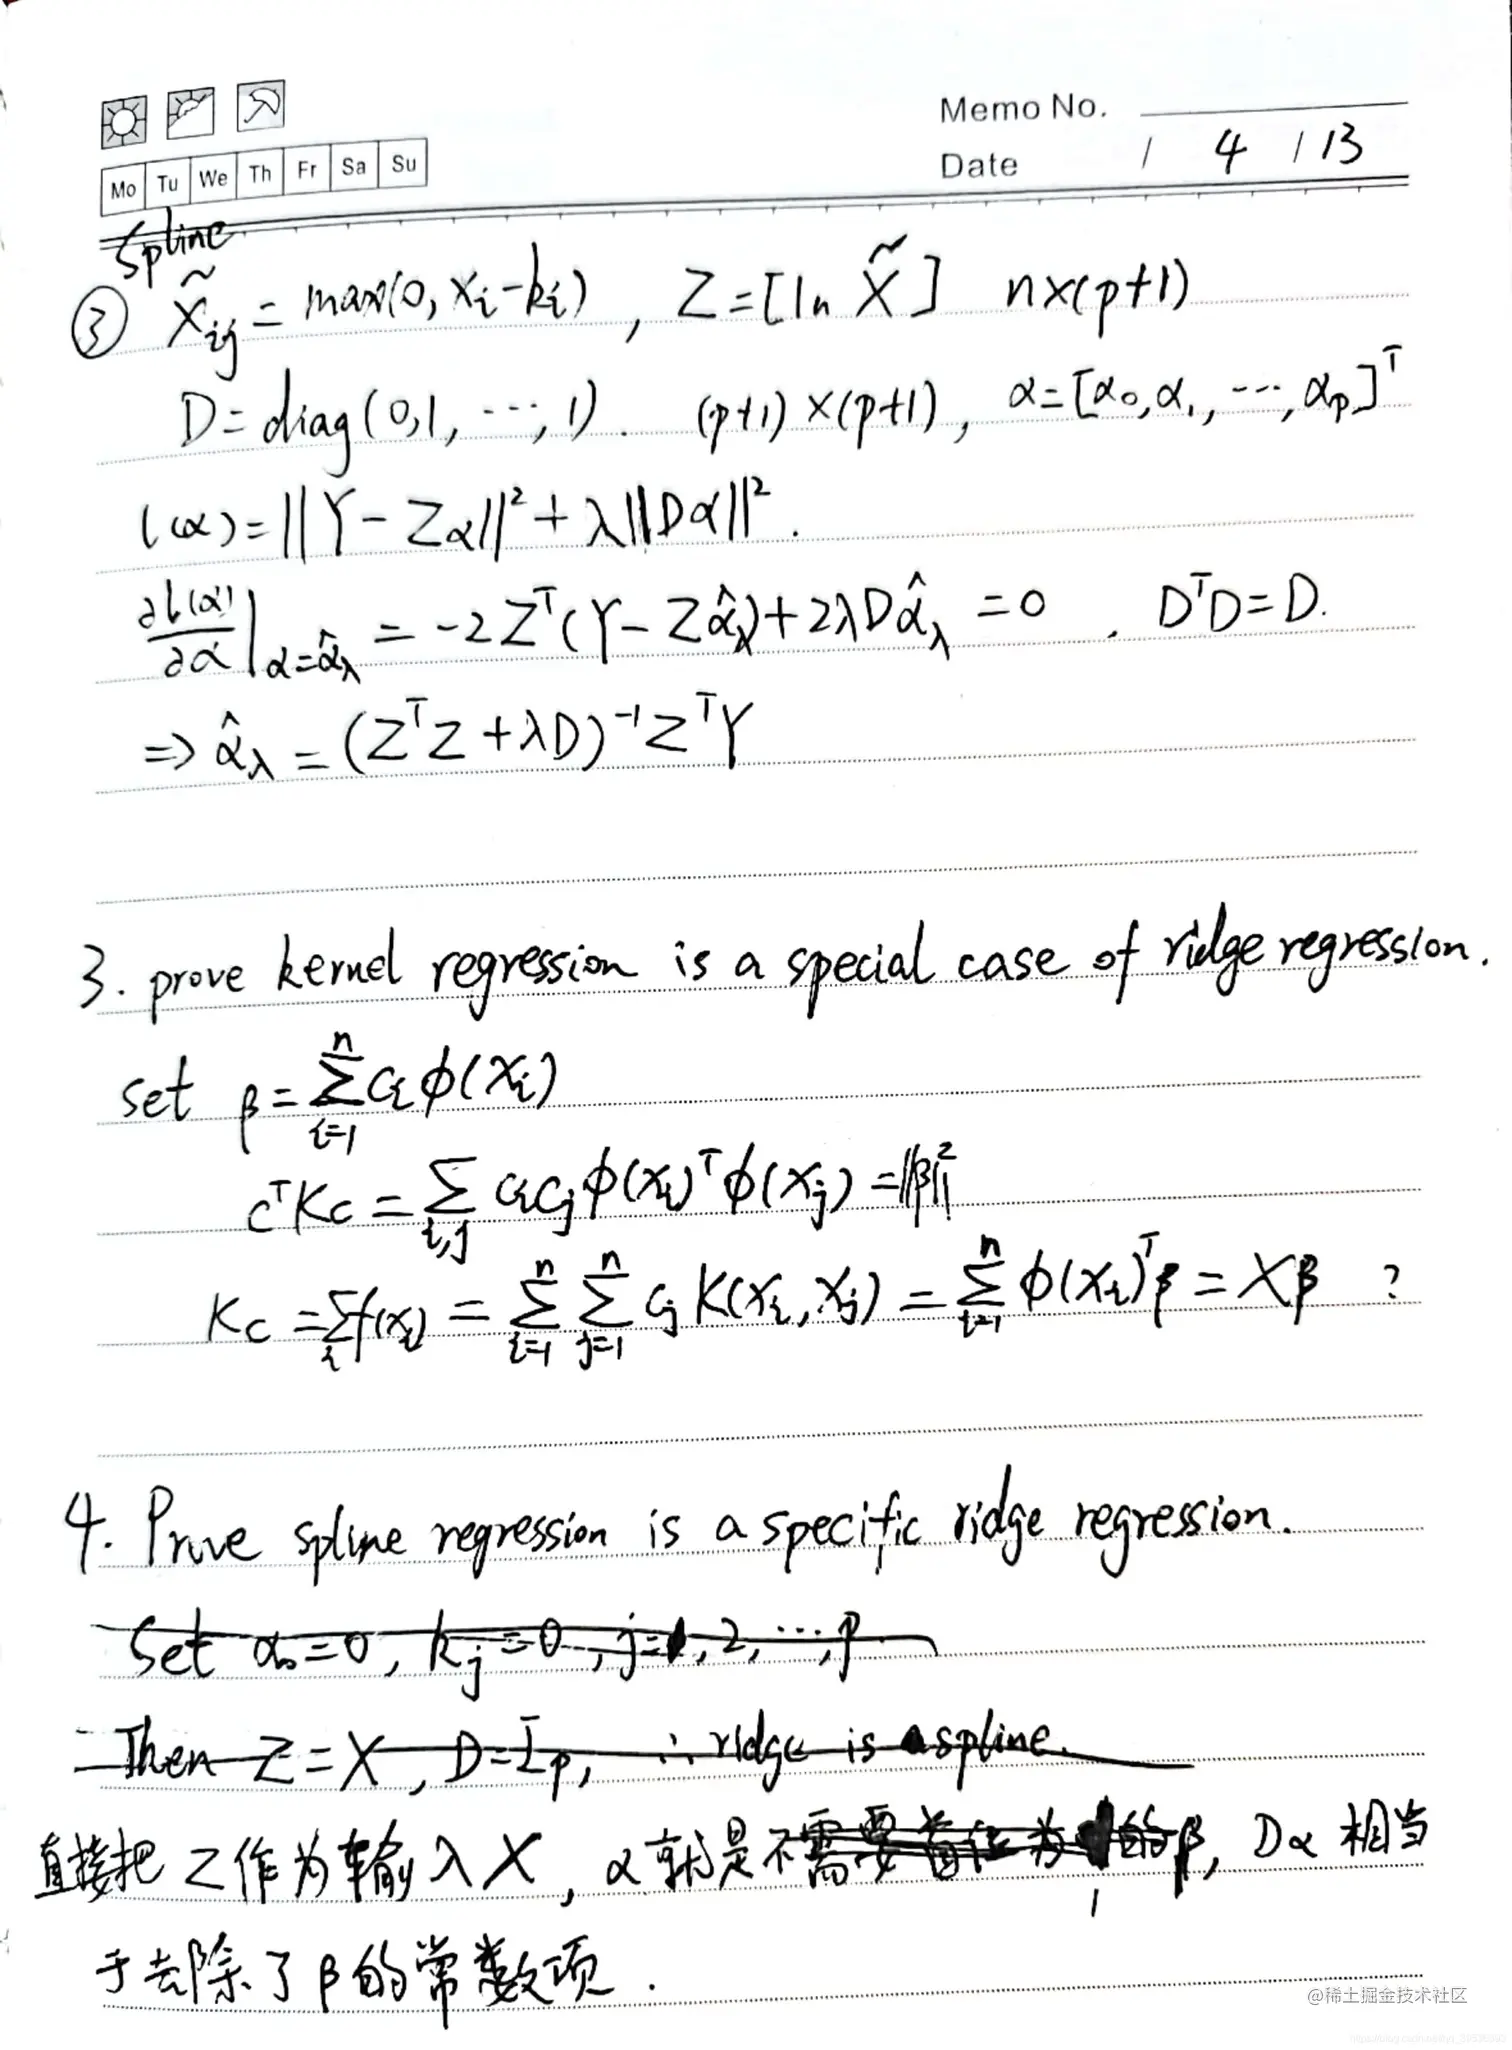 Memo No.
Date / 4 / 13
Mo Tu We Th Fr Sa Su
Spline
③ X̃ij = max(0, xi-ki) , Z = [1n X̃] n×(p+1)
D = diag(0,1, ⋯, 1). (p+1)×(p+1), α=[α₀,α₁, ⋯, αp]ᵀ
l(α) = ||Y - Zα||² + λ||Dα||².
∂l(α)/∂α |α=α̂λ = -2Zᵀ(Y - Zα̂λ) + 2λDα̂λ = 0 , DᵀD = D.
⇒ α̂λ = (ZᵀZ + λD)⁻¹ZᵀY
3. prove kernel regression is a special case of ridge regression.
set β = Σⁿi=1 ci ϕ(xi)
cᵀKc = Σi,j cicjϕ(xi)ᵀϕ(xj) = ||β||²
Kc = Σi f(xi) = Σⁿi=1 Σⁿj=1 cj K(xi, xj) = Σⁿi=1 ϕ(xi)ᵀβ = Xβ ?
4. Prove spline regression is a specific ridge regression.
Set α₀=0, kj=0, j=1, 2, ⋯, p
Then Z = X, D = Ip, ∴ ridge is a spline.
直接把 Z 作为输入 X, α 就是不需要首位为1的β, Dα 相当
于去除了 β 的常数项.
@稀土掘金技术社区